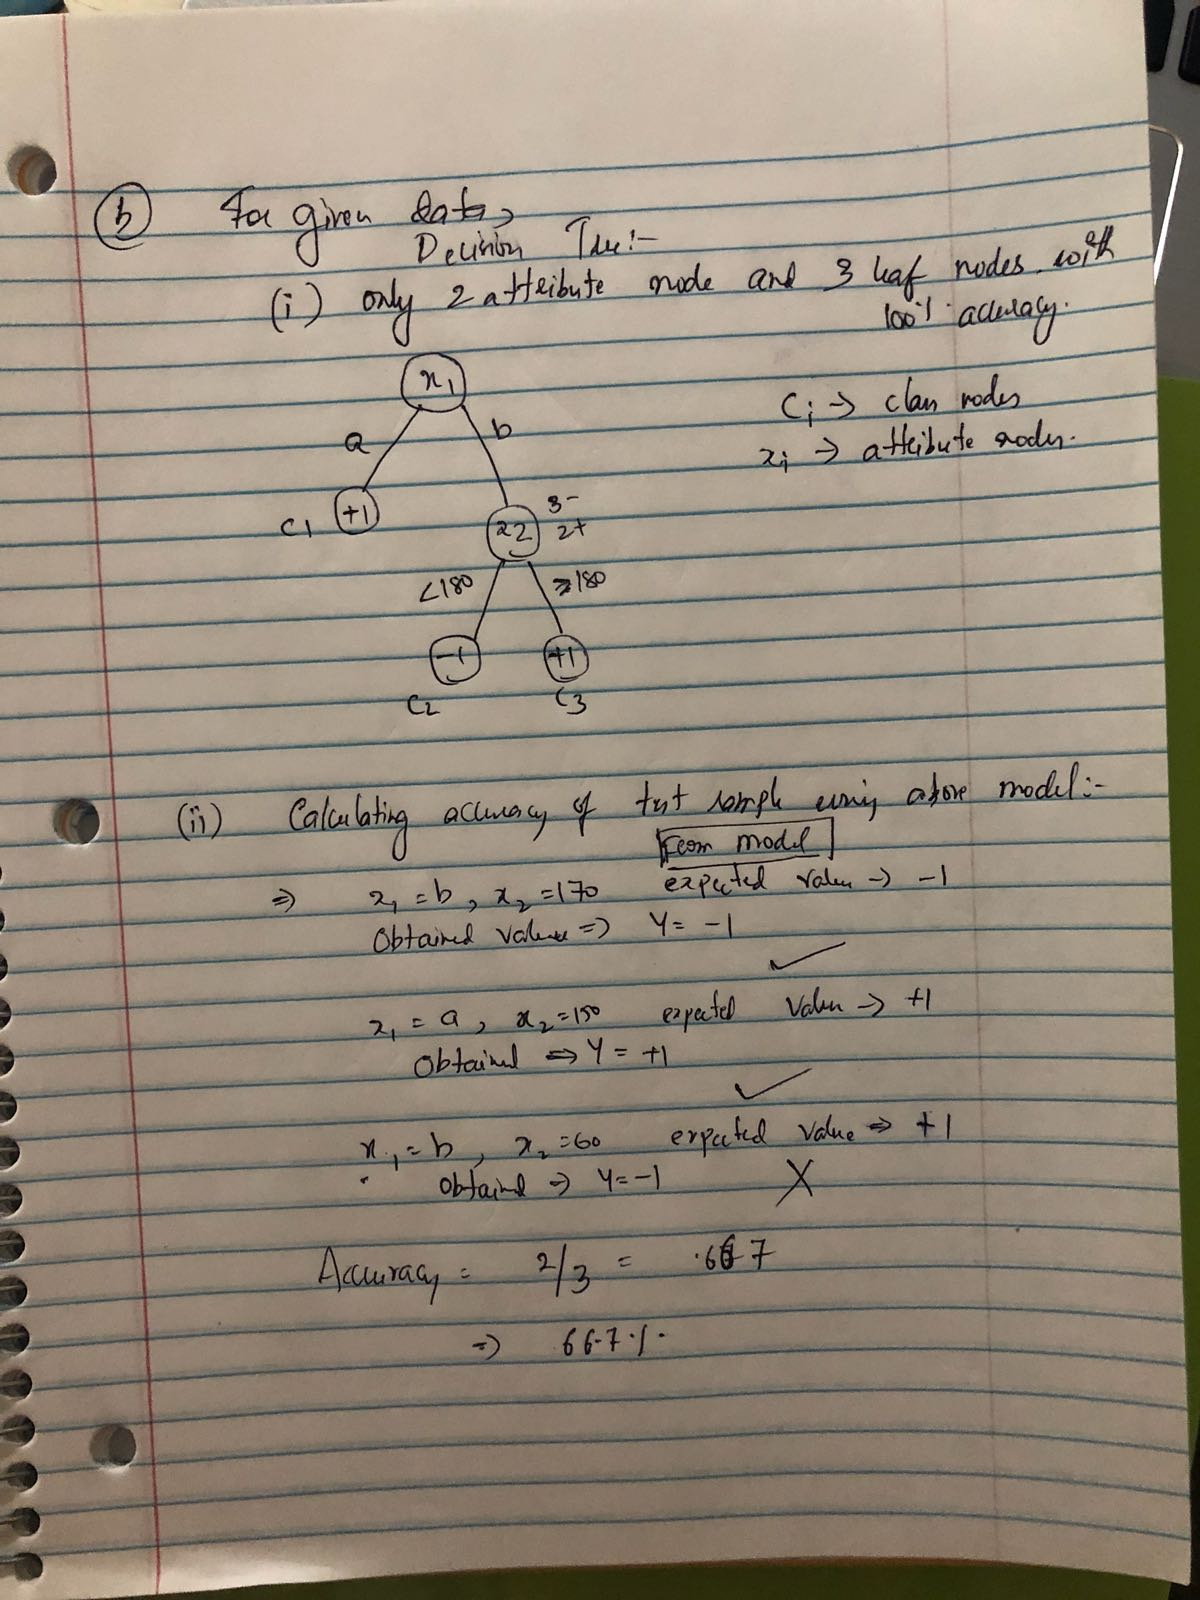 (b) For given data,
Decision Tree:-
(i) only 2 attribute node and 3 leaf nodes with
100% accuracy.
x1
Ci → class nodes
a b
xi → attribute nodes.
C1 +1
x2 3- 2+
<180 ≥180
-1 +1
C2 C3
(ii) Calculating accuracy of test sample using above model:-
From model
⇒ x1 = b, x2 = 170 expected value → -1
Obtained value ⇒ Y = -1 ✓
x1 = a, x2 = 150 expected value → +1
Obtained ⇒ Y = +1 ✓
x1 = b, x2 = 60 expected value ⇒ +1
Obtained ⇒ Y = -1 X
Accuracy = 2/3 = .667
⇒ 66.7%.